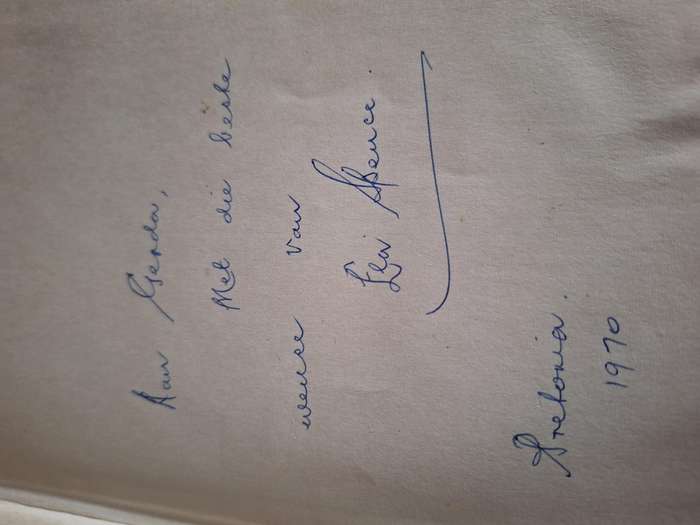 Aan Gerda,
Met die beste
wense van
Ella Spence.
Pretoria.
1970